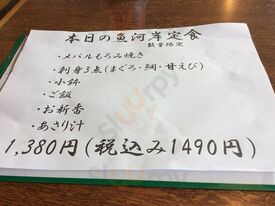 本日の魚河岸定食
数量限定
・メバルもろみ焼き
・刺身3点(まぐろ・鯛・甘えび)
・小鉢
・ご飯
・お新香
・あさり汁
1,380円(税込み1490円)